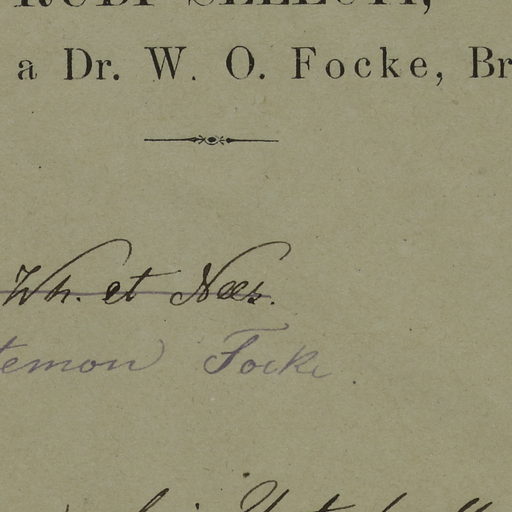 RUBI SELECTI,
a Dr. W. O. Focke, Br
Wh. et Nees.
temon Focke.